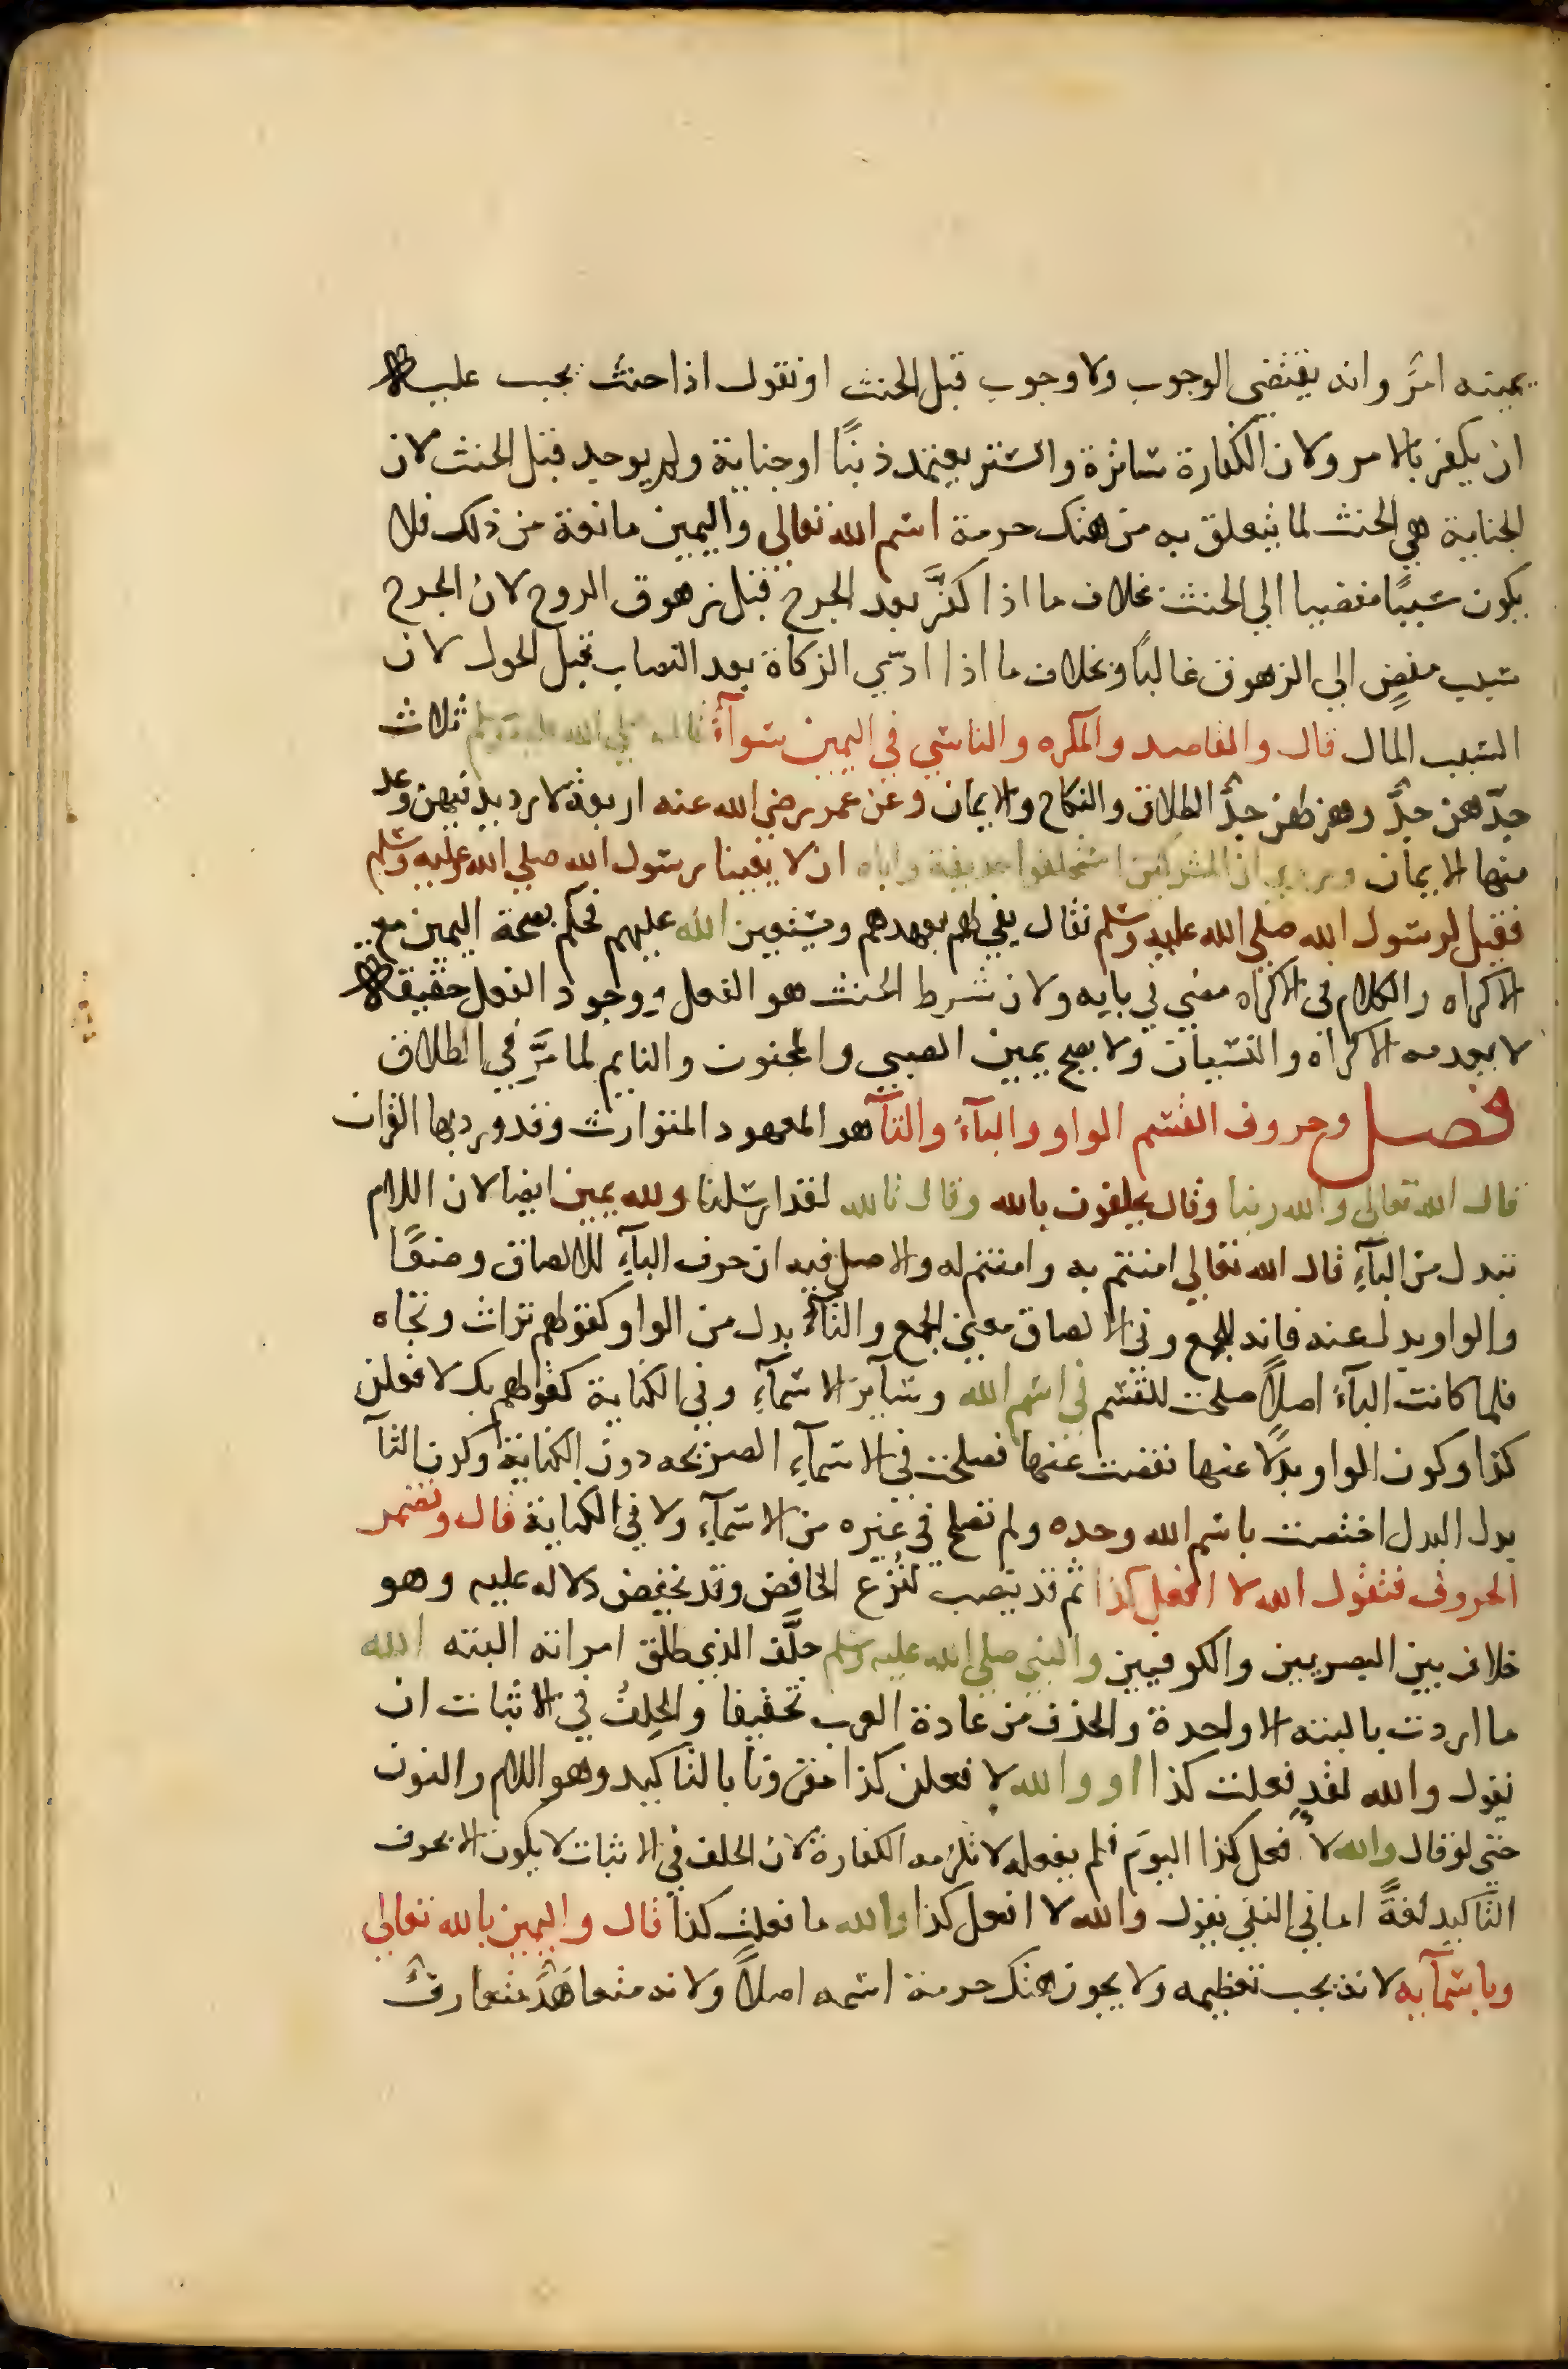 يمينه امرٌ وانه يقتضي الوجوب ولا وجوب قبل الحنث او نقول اذا حنث يجب عليه
ان يكفر بالامر ولان الكفارة ساترة والستر يعتمد ذنبًا او جناية ولم يوجد قبل الحنث لان
الجناية هي الحنث لما يتعلق به من هتك حرمة اسم الله تعالي واليمين مانعة من ذلك فلا
يكون سببًا مفضيا الي الحنث بخلاف ما اذا كفَّر بعد الجرح قبل زهوق الروح لان الجرح
سبب مفضٍ الي الزهوق غالبًا وبخلاف ما اذا ادّي الزكاة بعد النصاب قبل الحول لان
السبب المال قال والقاصد والمكره والناسي في اليمين سوآءٌ قال صلي الله عليه وسلم ثلاث
جدّهن جدٌّ وهزلهن جدٌّ الطلاق والنكاح والايمان وعن عمر رضي الله عنه اربعة لا رديد فيهن وعد
منها الايمان وروي ان المشركين استحلفوا حذيفة واباه ان لا يعينا رسول الله صلي الله عليه وسلم
فقيل لرسول الله صلي الله عليه وسلم فقال يفي لهم بعهدهم ويستعين الله عليهم فحكم بصحة اليمين مع
الاكراه والكلام في الاكراه مضي في بابه ولان شرط الحنث هو الفعل ووجود الفعل حقيقة
لا يعدمه الاكراه والنسيان ولا يصح يمين الصبي والمجنون والنايم لما مرَّ في الطلاق
فصل وحروف القسم الواو والبآءُ والتآء هو المعهود المتوارث وقد ورد بها القران
قال الله تعالي والله ربنا وقال يحلفون بالله وقال تالله لقد ارسلنا ولله يمين ايضا لان اللام
تبدل من البآءِ قال الله تعالي امنتم به وامنتم له والاصل فيه ان حرف البآءِ للالصاق وضعًا
والواو بدل عنه فانه للجمع وفي الالصاق معني الجمع والتآءُ بدل من الواو كقولهم تراث وتجاه
فلما كانت البآءُ اصلاً صلحت للقسم في اسم الله وسآير الاسمآءِ وفي الكناية كقولهم بك لافعلن
كذا وكون الواو بدلًا عنها نقصت عنها فصلحت في الاسمآءِ الصريحه دون الكناية وكون التآ
بدل البدل اختصت باسم الله وحده ولم تصلح في غيره من الاسمآءِ ولا في الكناية قال وتضمر
الحروف فتقول الله لا افعل كذا ثم قد ينصب لنُزع الخافض وقد يخفض دلاله عليه وهو
خلاف بين البصريين والكوفيين والنبي صلي الله عليه وسلم حلَّف الذي طلق امراته البته الله
ما اردت بالبته الا واحدة والحذف من عادة العرب تخفيفا والحلفُ في الاثبات ان
نقول والله لقد فعلت كذا او والله لافعلن كذا مقرونا بالتاكيد وهو اللام والنون
حتي لو قال والله لا افعل كذا اليوم فلم يفعله لا تلزمه الكفارة لان الحلف في الاثبات لا يكون الا بحرف
التاكيد لغةً اما في النفي يقول والله لا افعل كذا والله ما فعلت كذا قال واليمين بالله تعالي
وباسمآيه لانه يجب تعظيمه ولا يجوز هتك حرمة اسمه اصلاً ولانه متعاهَدٌ متعارفٌ